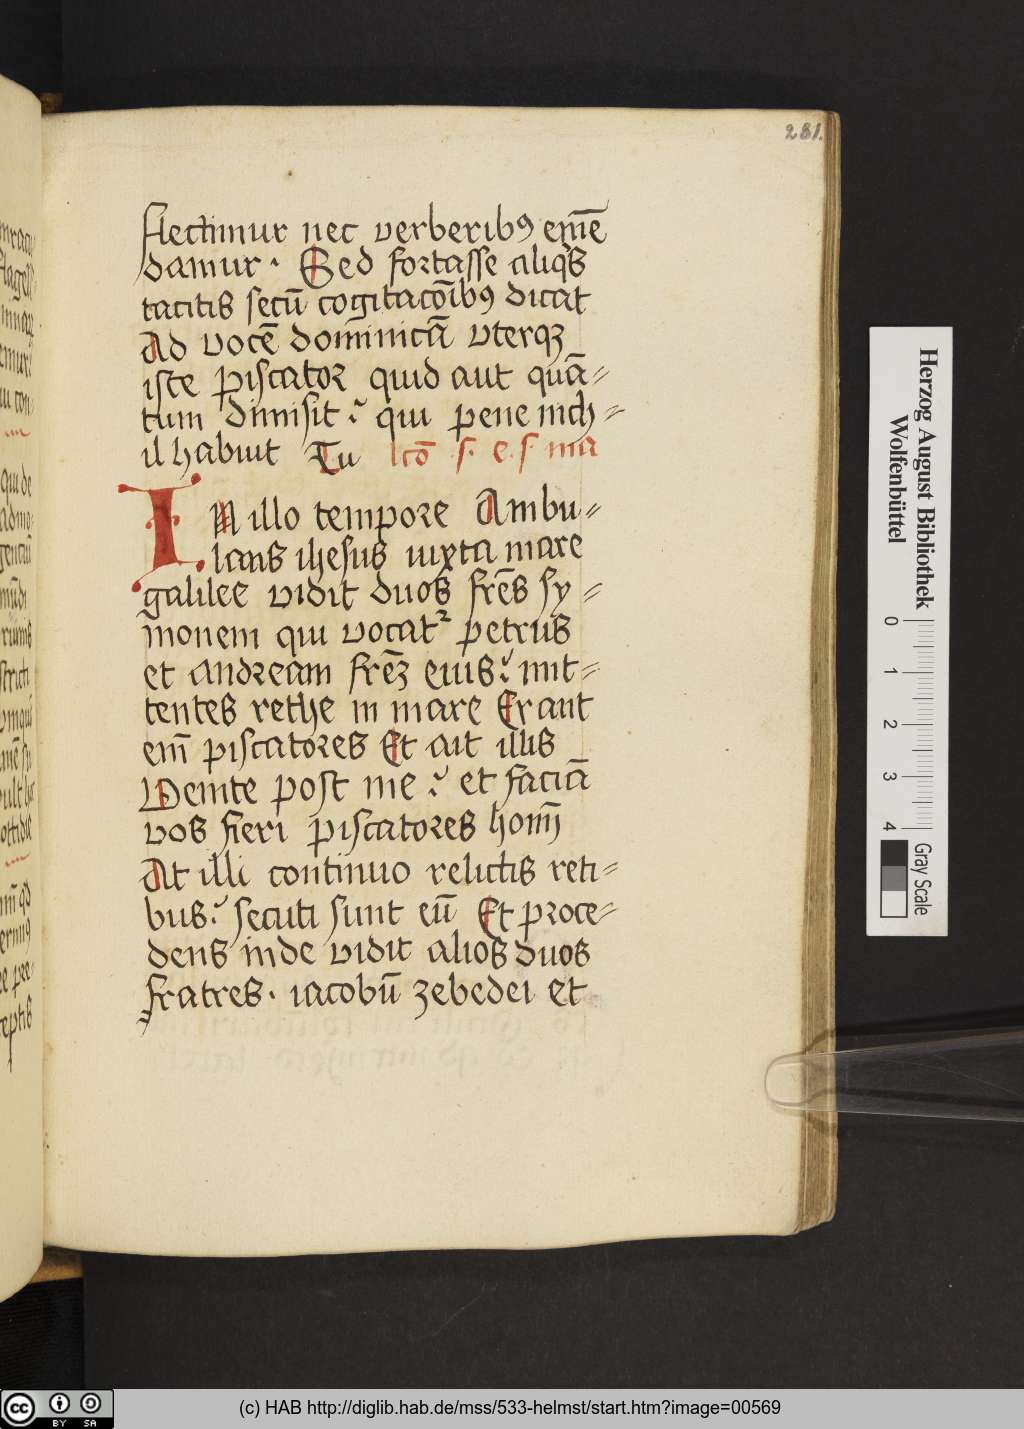 281.
flectimur nec verberibꝰ em̄e
damur · Sed fortasse aliqͥs
tacitis secū cogitacōibꝰ dicat
Ad vocē dominicā vterqꝫ
iste piscator quid aut quā⸗
tum dimisit qui pene nich⸗
il habuit Tu lcō s. e. s. ma
IN illo tempore Ambu⸗
lans ihesus iuxta mare
galilee vidit duos fr̄es sy⸗
monem qui vocatᷣ petrus
et andream fr̄eꝫ eius mit⸗
tentes rethe in mare Erant
em̄ piscatores Et ait illis
Venite post me et faciā
vos fieri piscatores hom̄
At illi continuo relictis reti⸗
bus secuti sunt eū Et proce⸗
dens inde vidit alios duos
fratres · iacobū zebedei et
Herzog August Bibliothek
Wolfenbüttel
0 1 2 3 4
Gray Scale
cc BY SA
(c) HAB http://diglib.hab.de/mss/533-helmst/start.htm?image=00569